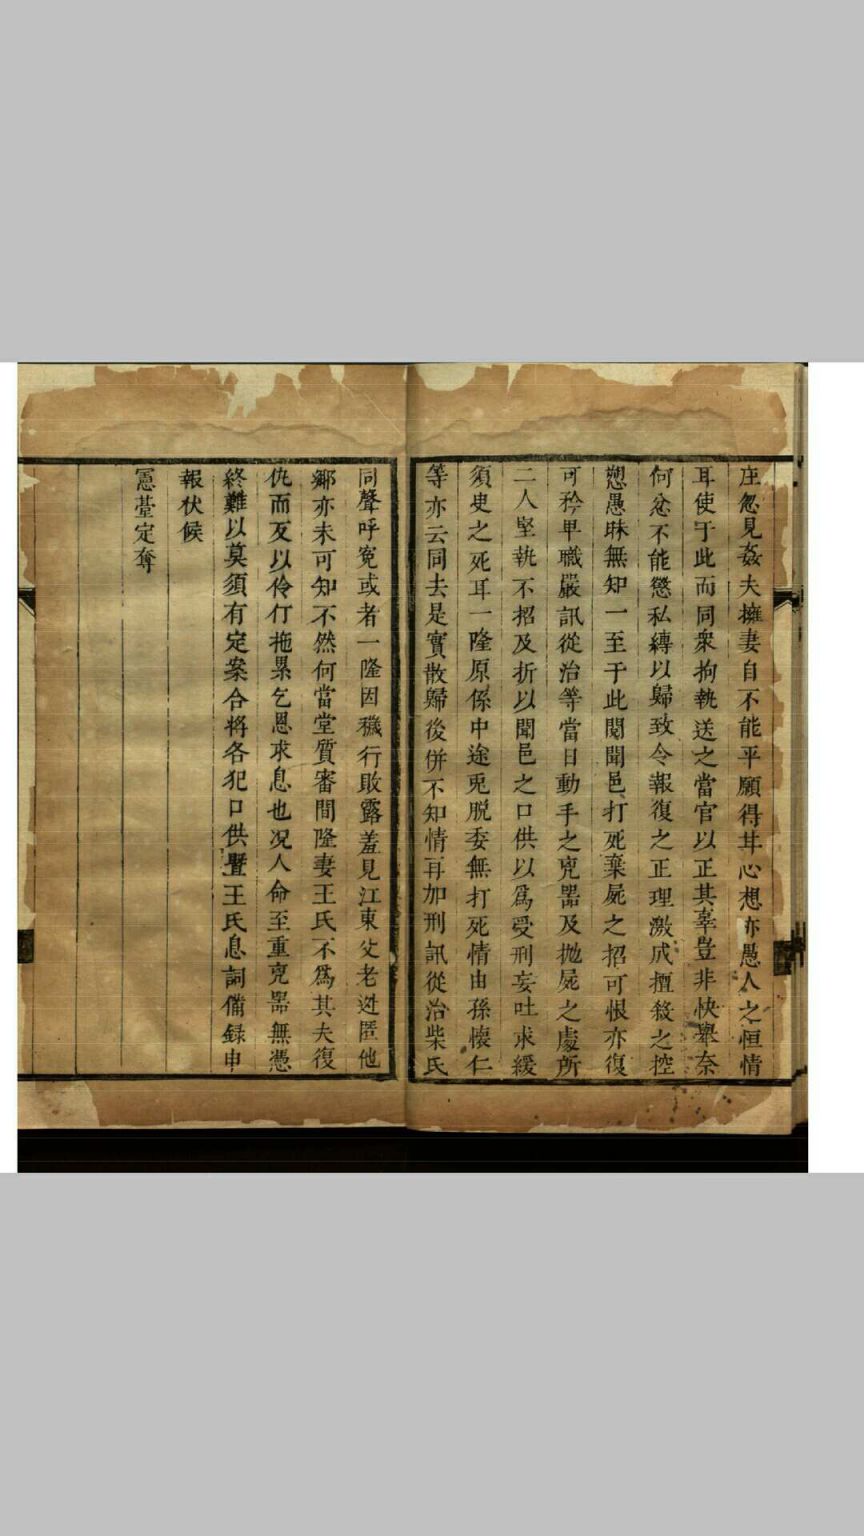 庄忽見姦夫擁妻自不能平願得其心想亦愚人之恒情
耳使于此而同衆拘執送之當官以正其辜豈非快舉奈
何忿不能懲私縳以歸致令報復之正理激成擅殺之控
愬愚昧無知一至于此閱聞邑打死棄屍之招可恨亦復
可矜卑職嚴訊從治等當日動手之兇噐及抛屍之處所
二人堅執不招及折以聞邑之口供以爲受刑妄吐求緩
須臾之死耳一隆原係中途兎脱委無打死情由孫懷仁
等亦云同去是實散歸後併不知情耳加刑訊從治柴氏
同聲呼寃或者一隆因穢行敗露羞見江東父老逃匿他
鄉亦未可知不然何當堂質審間隆妻王氏不爲其夫復
仇而反以伶仃拖累乞恩求息也况人命至重兇噐無憑
終難以莫須有定案合將各犯口供曁王氏息詞備録申
報伏候
憲臺定奪